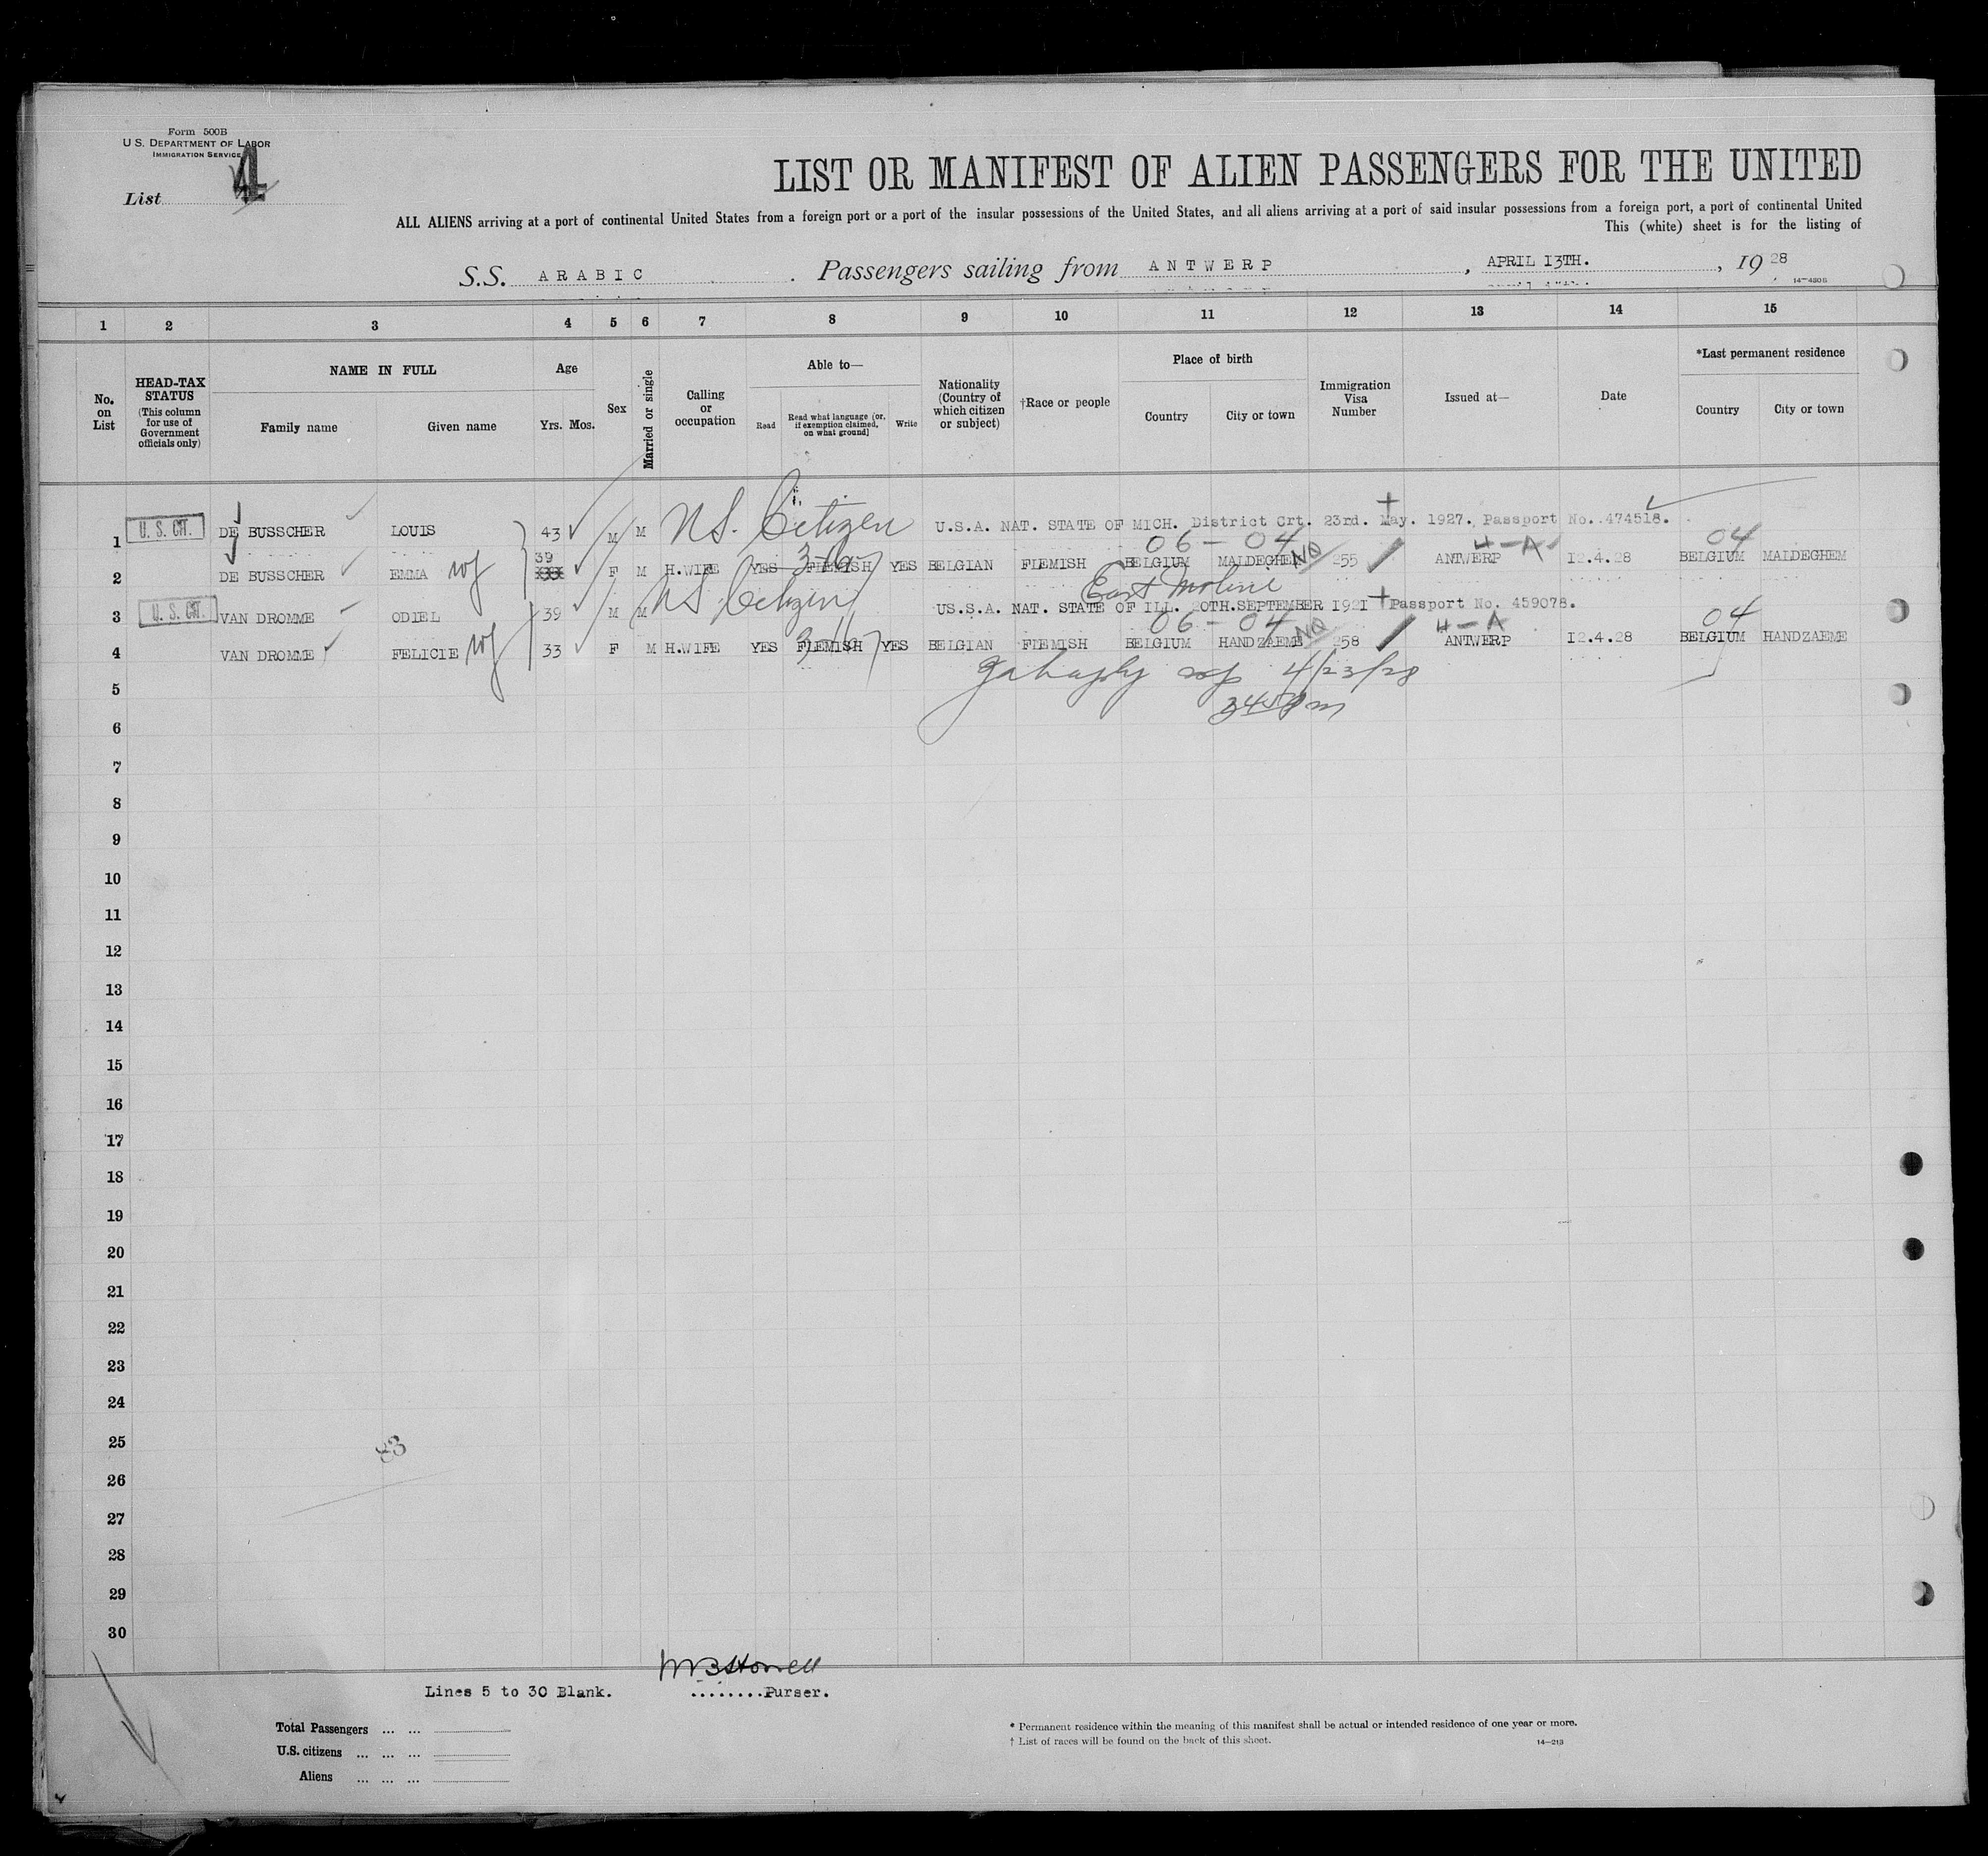 Form 500B
U.S. DEPARTMENT OF LABOR
IMMIGRATION SERVICE
List 4
LIST OR MANIFEST OF ALIEN PASSENGERS FOR THE UNITED
ALL ALIENS arriving at a port of continental United States from a foreign port or a port of the insular possessions of the United States, and all aliens arriving at a port of said insular possessions from a foreign port, a port of continental United
This (white) sheet is for the listing of
S.S. ARABIC . Passengers sailing from ANTWERP , APRIL I3TH. , 19 28
14—4806
1 2 3 4 5 6 7 8 9 10 11 12 13 14 15
No. on List
HEAD-TAX STATUS (This column for use of Government officials only)
NAME IN FULL
Family name Given name
Age
Yrs. Mos.
Sex
Married or single
Calling or occupation
Able to—
Read Read what language [or, if exemption claimed, on what ground] Write
Nationality (Country of which citizen or subject)
†Race or people
Place of birth
Country City or town
Immigration Visa Number
Issued at—
Date
*Last permanent residence
Country City or town
1 U. S. CIT. DE BUSSCHER LOUIS 43 M M U.S. Citizen U.S.A. NAT. STATE OF MICH. District Crt. 23rd. May. 1927. Passport No. 474518.
39 3-6 06 - 04 NQ 4-A 04
2 DE BUSSCHER EMMA wf XXX F M H.WIFE YES FLEMISH YES BELGIAN FLEMISH BELGIUM MALDEGHEM 255 ANTWERP I2.4.28 BELGIUM MALDEGHEM
East Moline
3 U. S. CIT. VAN DROMME ODIEL 39 M M U.S. Citizen US.S.A. NAT. STATE OF ILL. 20TH.SEPTEMBER I92I Passport No. 459078.
06 - 04 NQ 4-A 04
4 VAN DROMME FELICIE wf 33 F M H.WIFE YES FLEMISH YES BELGIAN FLEMISH BELGIUM HANDZAEME 258 ANTWERP I2.4.28 BELGIUM HANDZAEME
5 4/23/28
6
7
8
9
10
11
12
13
14
15
16
17
18
19
20
21
22
23
24
25 83
26
27
28
29
30
Lines 5 to 30 Blank. ........Purser.
Total Passengers ... ...
U.S. citizens ... ... ...
Aliens ... ... ...
* Permanent residence within the meaning of this manifest shall be actual or intended residence of one year or more.
† List of races will be found on the back of this sheet.
14—213